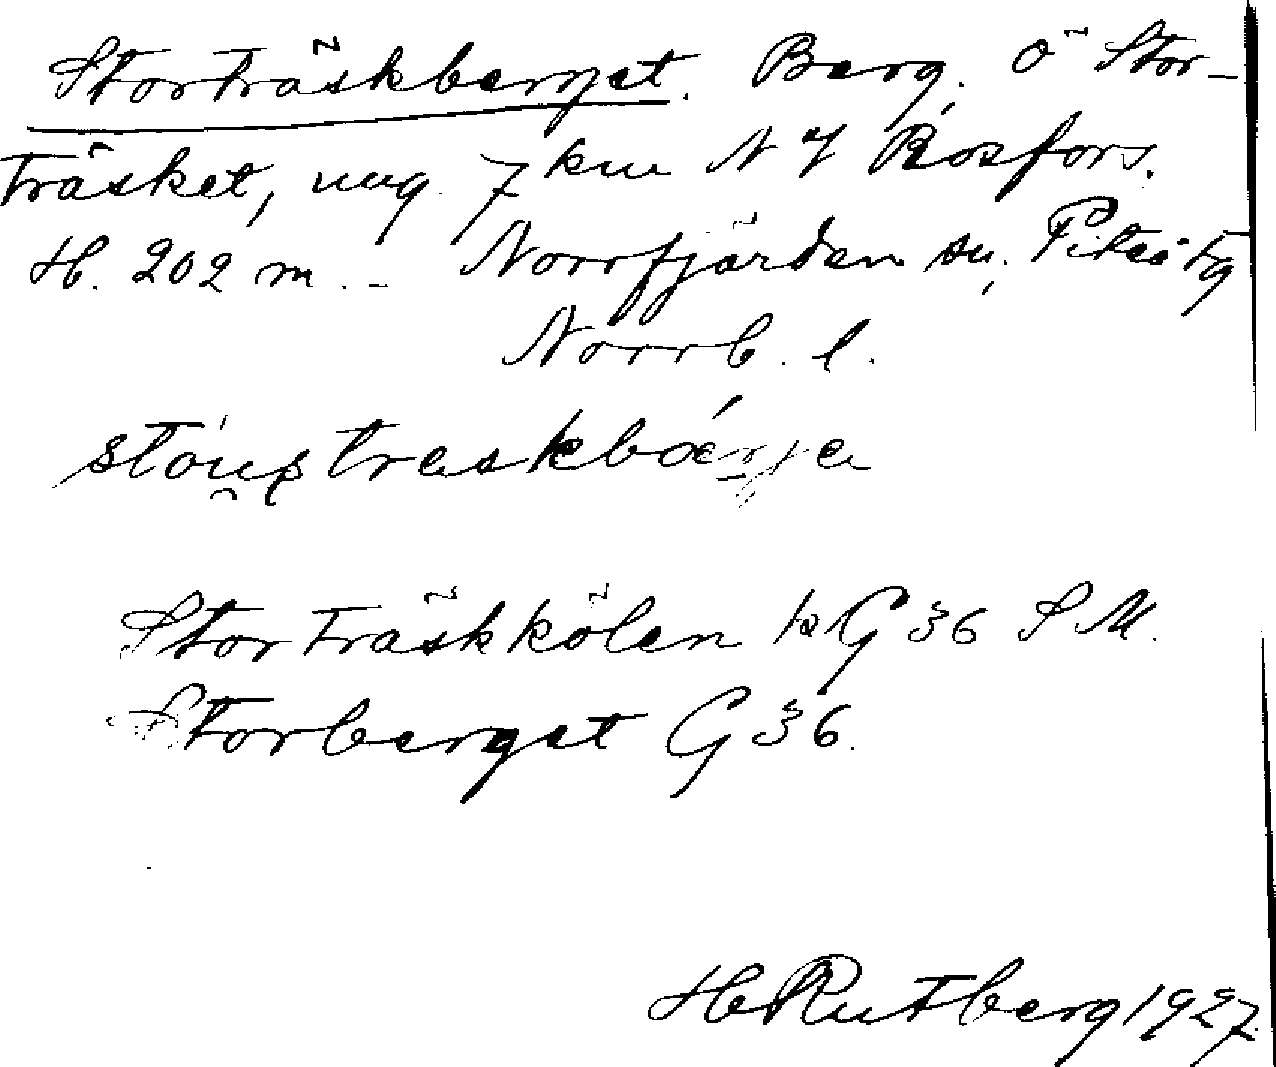 Storträskberget. Berg. Ö Stor-
träsket, ung. 7 km N f Rosfors.
H. 202 m. - Norrfjärden sn, Piteå tg
Norrb. l.
Storträskkölen ka G 36 S M.
Storberget G 36.
H Rutberg 1927.